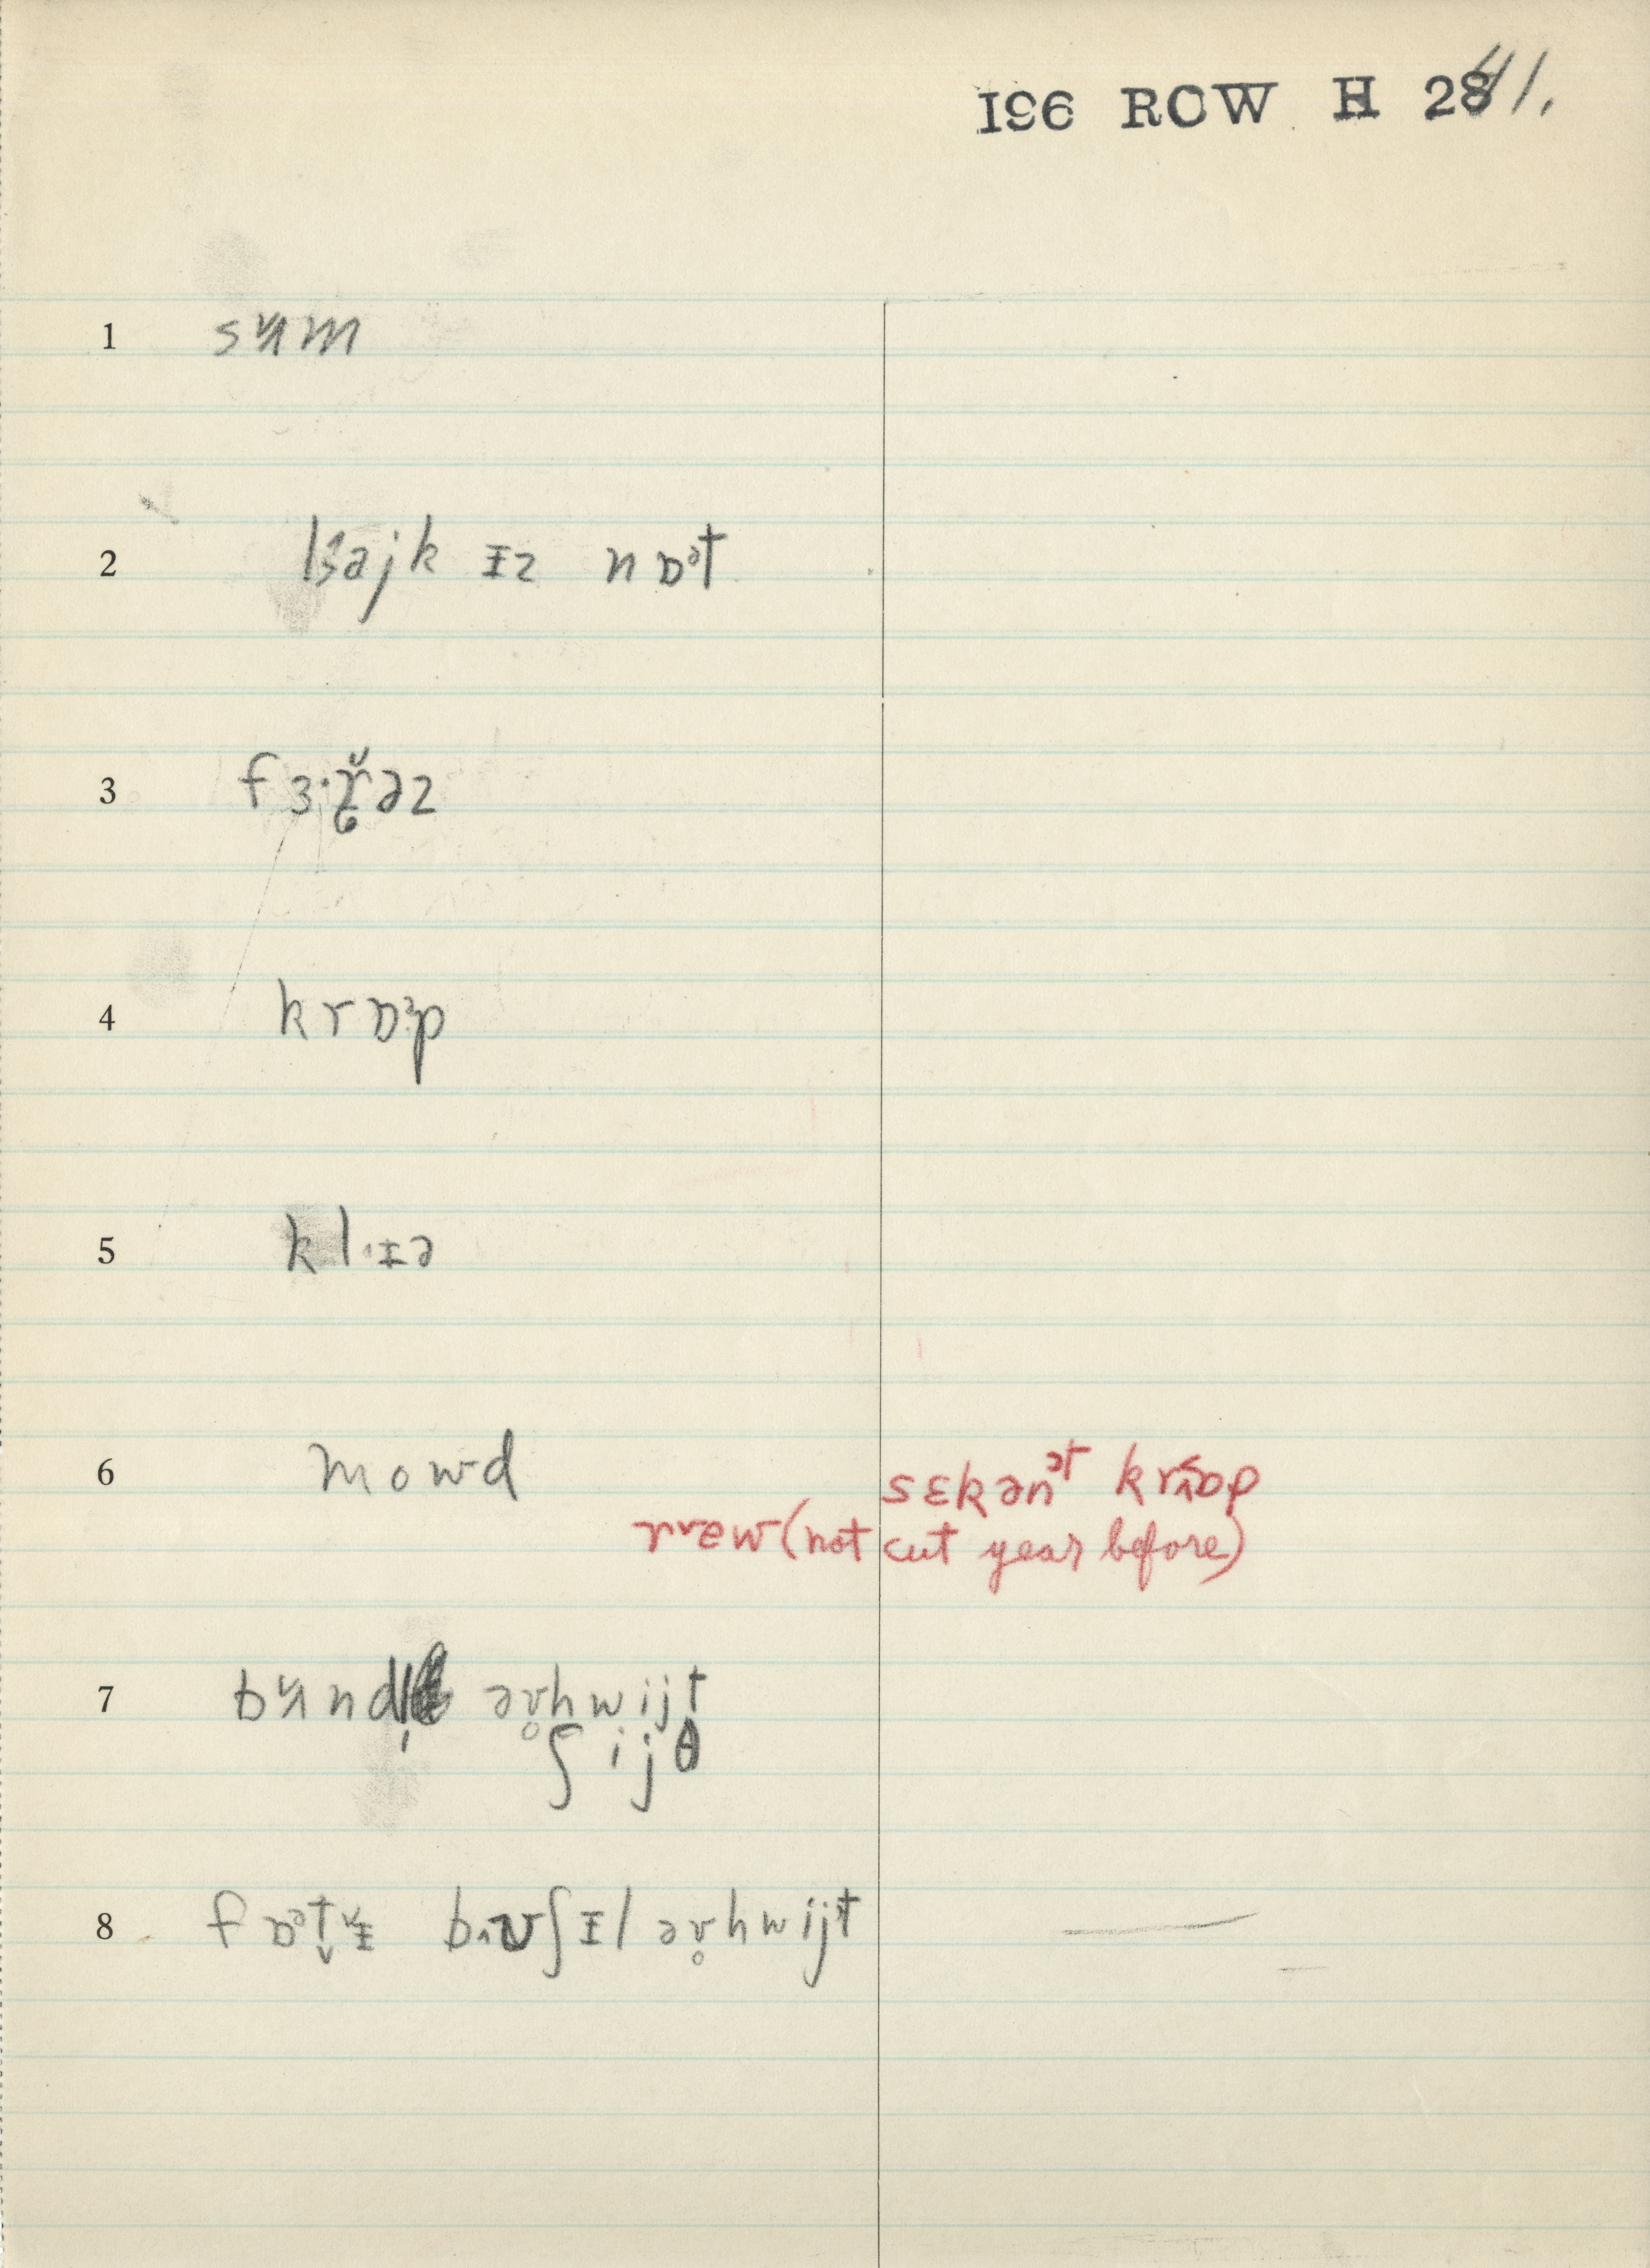 196 ROW H 241.
1 sʌm
2 lɜajk ɪz nɒᵊt
3 fɜ·ɚəz
4 krɒᵊp
5 klɪə
6 mowd
sɛkənᵊt krɒp
rew (not cut year before)
7 bʌndl əv̥hwijt
ʃijθ
8 fɒᵊt̬ɪ bʊʃɪl əv̥hwijt